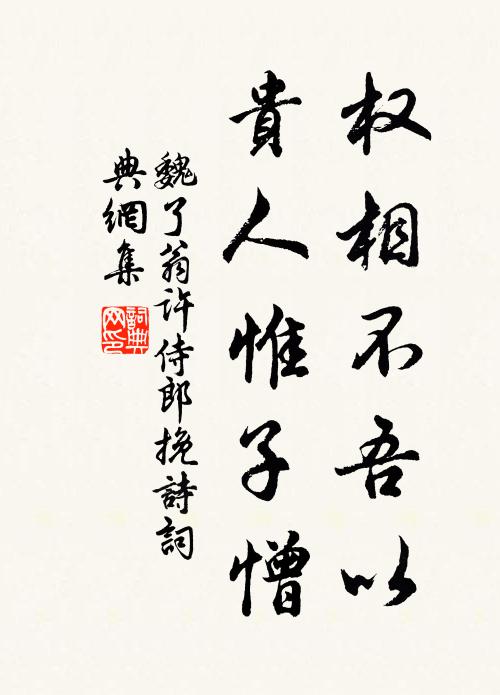 权相不吾以
貴人惟子憎
魏了翁许侍郎挽詩詞
典網集
詞典
网印